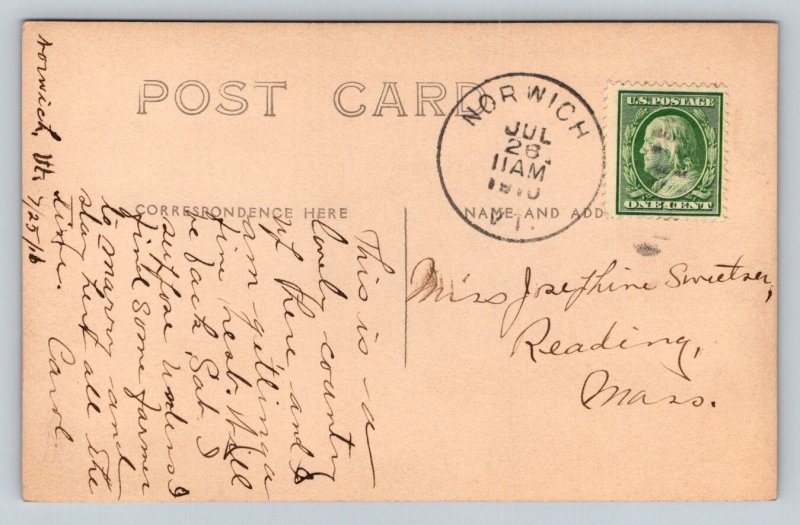 POST CARD
CORRESPONDENCE HERE
NAME AND ADD
NORWICH
JUL
26
11AM
1910
VT.
U.S. POSTAGE
ONE CENT
Norwich, Vt. 7/25/10
This is a
lovely country
up there, and I
am getting a
fine rest. Will
be back Sat. I
suppose unless I
find some farmer
to marry and
stay here all the
time. Carol
Miss Josephine Sweetser,
Reading,
Mass.